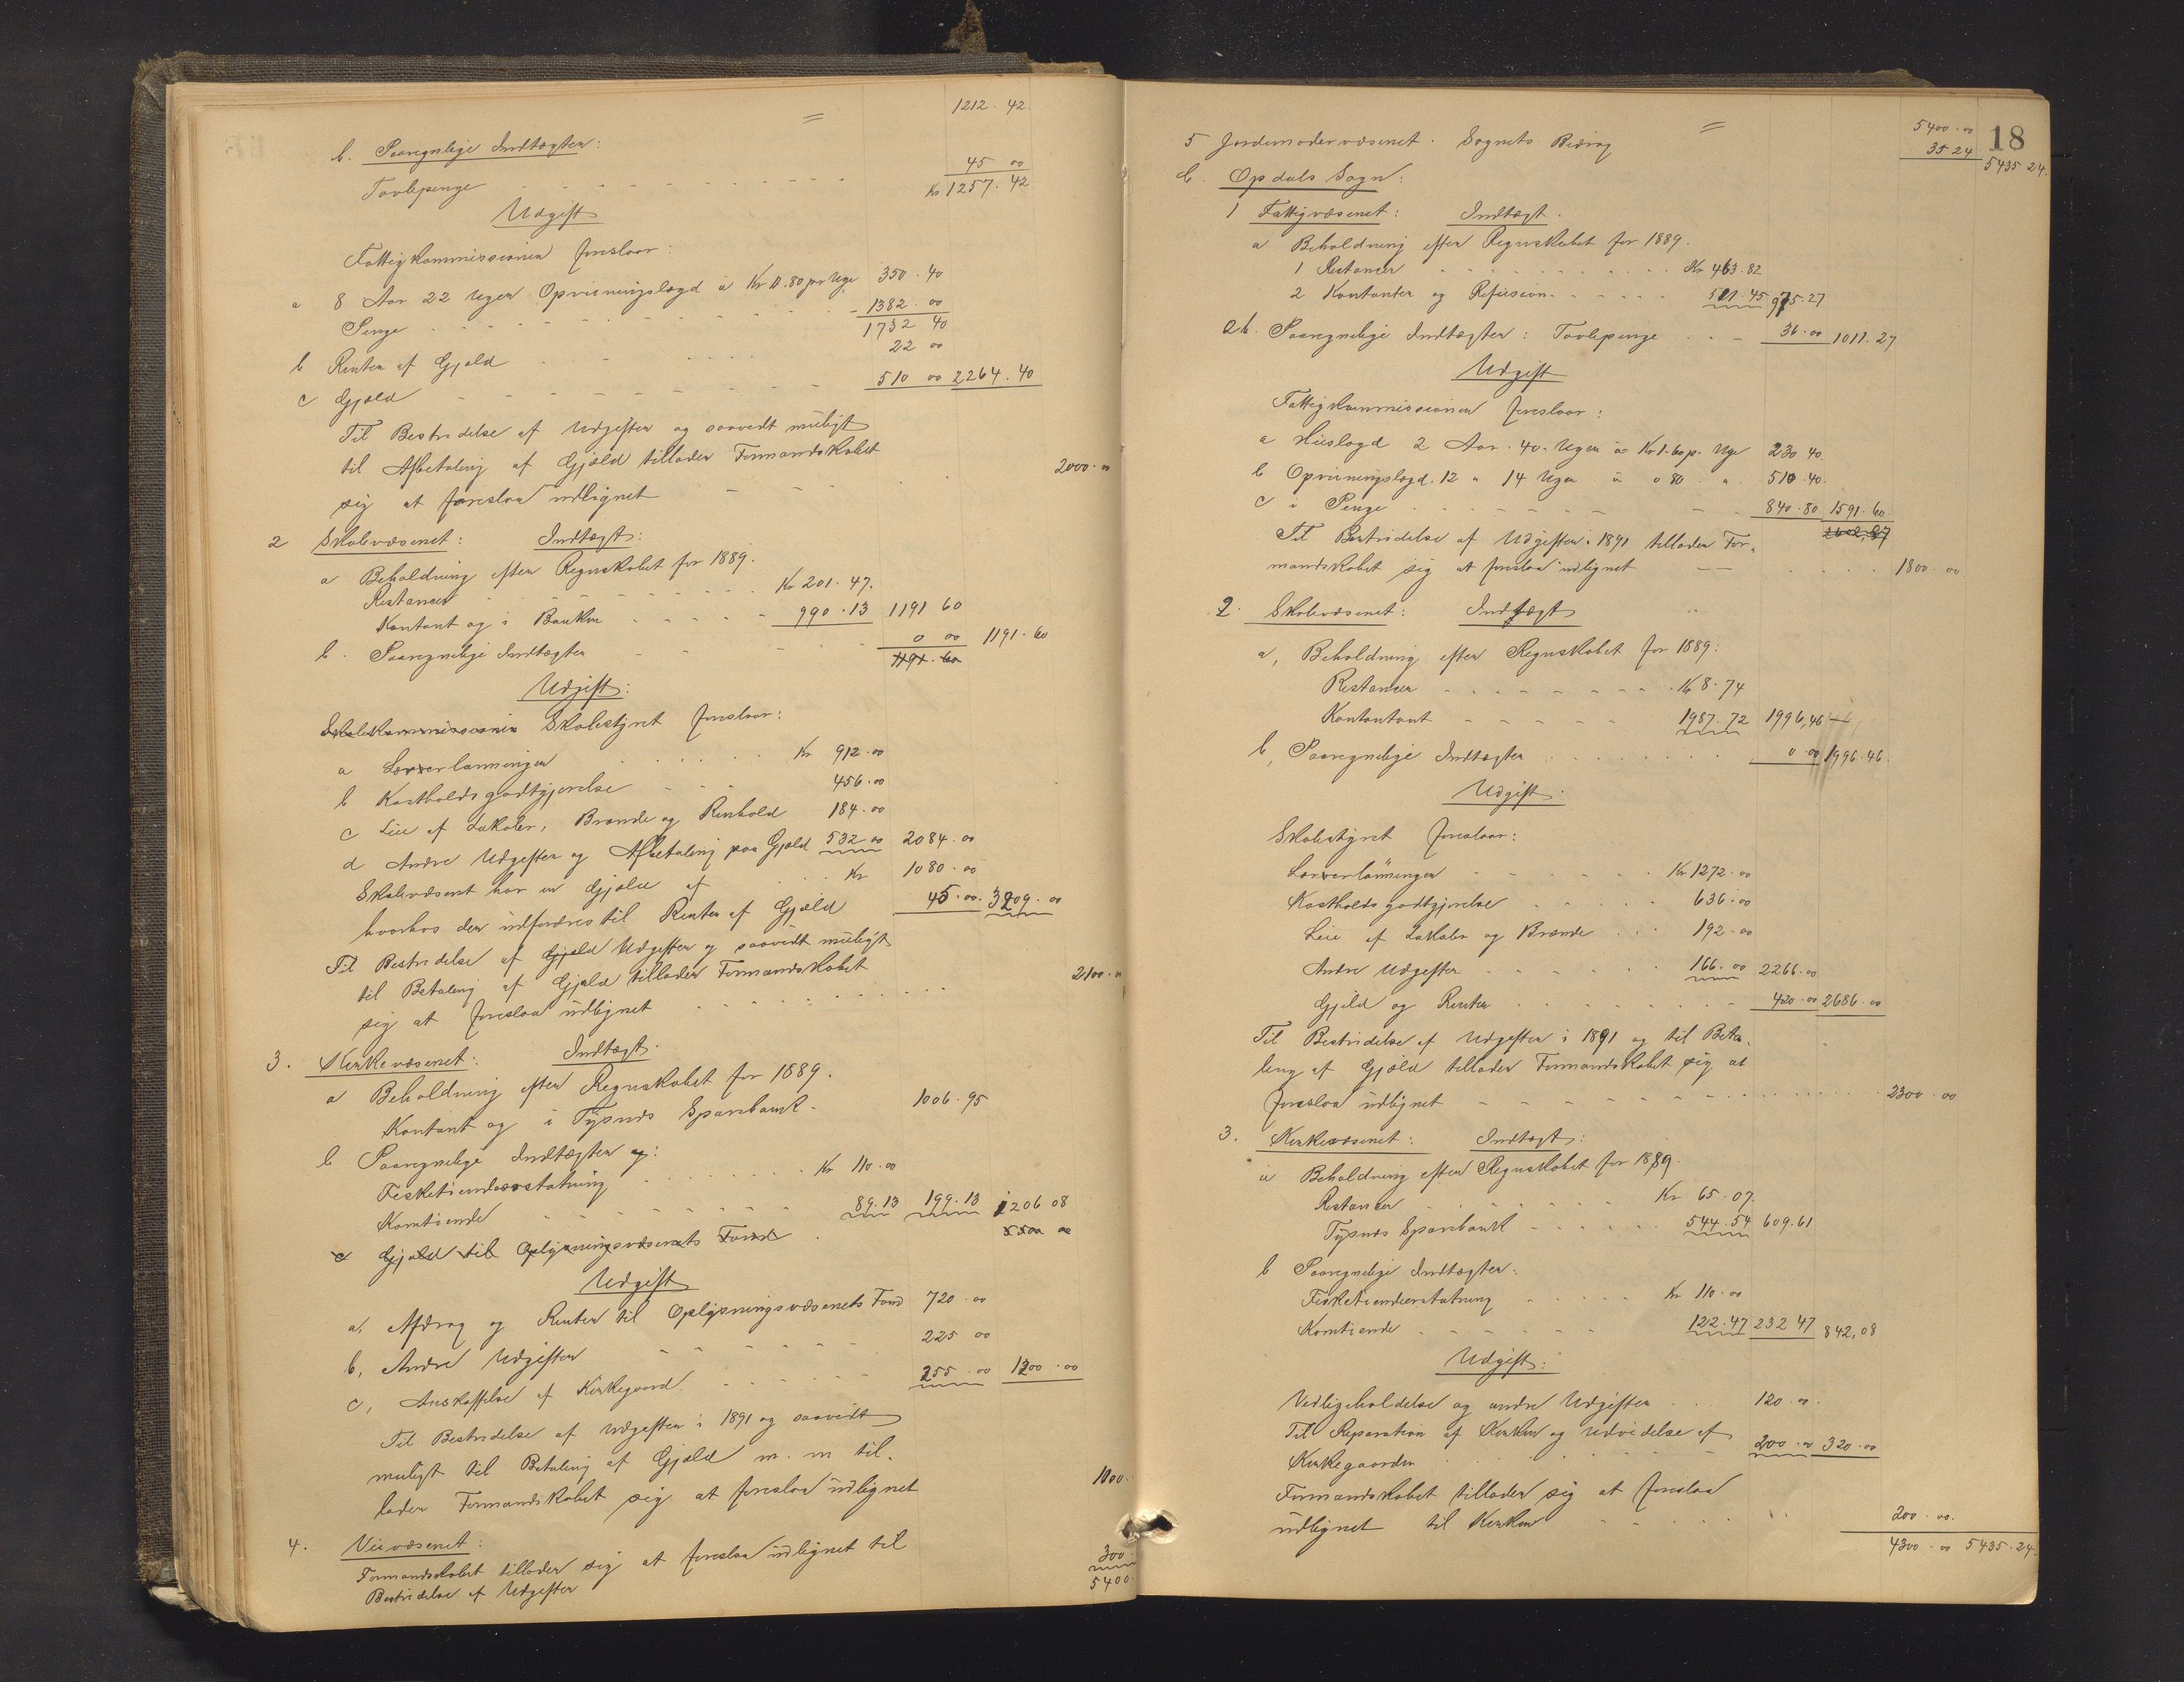 =
1212. 42.
b. Paaregnelige Indtægter:
Tavlepenge - - - - - - - - - - 45 00
Kr 1257. 42
Udgift
Fattigkommissionen foreslaar:
a 8 Aar 22 Uger Opviiningslægd a Kr 0.80 pr Uge 350. 40
Penge - - - - - - - - - 1382. 00
1732 40
b Renter af Gjæld - - - - - 22 00
c Gjæld - - - - - - - 510 00 2264. 40
Til Bestridelse af Udgifter og saavidt muligt
til Afbetaling af Gjæld tillader Formandskabet
sig at foreslaa udlignet - - - - 2000. 00
2 Skolevæsenet: Indtægt:
a Beholdning efter Regnskabet for 1889.
Restancer - - - - - - - - Kr 201. 47.
Kontant og i Banken - - - - - 990. 13 1191 60
b. Paaregnelige Indtægter - - - - - 0 00 1191. 60
1191. 60
Udgift:
Skolekommissionen Skolestyret foreslaar:
a Lærerlønninger . . . . . Kr 912. 00
b Kostholdsgodtgjørelse - - - 456. 00
c Leie af Lokaler, Brænde og Renhold 184. 00
d Andre Udgifter og Afbetaling paa Gjæld 532 00 2084. 00
Skolevæsenet har en Gjæld af . . . Kr 1080. 00
hvorhos der udfordres til Renter af Gjæld 45. 00. 3209. 00
Til Bestridelse af Gjæld Udgifter og saavidt muligt
til Betaling af Gjæld tillader Formandskabet
sig at foreslaa udlignet - - - - - - - 2100. 0
3. Kirkevæsenet: Indtægt.
a Beholdning efter Regnskabet for 1889.
Kontant og i Tysnes Sparebank - 1006. 95
b Paaregnelige Indtægter og:
Fisketiendeerstatning - - - - - - Kr 110. 00
Korntiende - - - - - - - - 89. 13 199. 13 1206 08
c Gjæld til Oplysningsvæsenets Fond . 5500 00
Udgift
a, Afdrag og Renter til Oplysningsvæsenets Fond 720. 00
b, Andre Udgifter - - - - - - - 225 00
c, Anskaffelse af Kirkegaard - - - - - 255. 00 1200. 00
Til Bestridelse af Udgifter i 1891 og saavidt
muligt til Betaling af Gjæld m. m til-
lader Formandskabet sig at foreslaa udlignet 1000.
4. Veivæsenet:
Formandskabet tillader sig at foreslaa udlignet til
Bestridelse af Udgifter 300.
5400.
=
18
5400. 00
5 Jordemodervæsenet. Sognets Bidrag 35 24 5435 24.
C. Opdals Sogn:
1 Fattigvæsenet: Indtægt.
a Beholdning efter Regnskabet for 1889.
1 Restancer - - - - - - - Kr 463. 82
2 Kontanter og Refusion - - - - - 511. 45 975. 27
b. Paaregnelige Indtægter: Tavlepenge - - - 36. 00 1011. 27
Udgift
Fattigkommissionen foreslaar:
a Huslægd 2 Aar. 40. Uger a Kr 1.60 p. Uge 230 40.
b Opviiningslægd. 12 " 14 Uger a 0 80 " 510. 40.
c i Penge - - - - - - - - 840. 80 1591. 60.
2602,87
Til Bestridelse af Udgifter i 1891 tillader For-
mandskabet sig at foreslaa udlignet - - - - - 1800. 00
2. Skolevæsenet: Indtægt
a, Beholdning efter Regnskabet for 1889:
Restancer - - - - - - - - Kr 8. 74
Kontantant - - - - - 1987. 72 1996,46
b, Paaregnelige Indtægter - - - - - - 0. 00 1996. 46.
Udgift.
Skolestyret foreslaar:
Lærerlönninger - - - - - - Kr 1272. 00
Kostholdsgodtgjørelse - - - - - 636. 00
Leie af Lokaler og Brænde . . . 192. 00
Andre Udgifter - - - - - - 166. 00 2266. 00
Gjæld og Renter - - - - - - - - 420. 00 2686. 00
Til Bestridelse af Udgifter i 1891 og til Beta-
ling af Gjæld tillader Formandskabet sig at
foreslaa udlignet - - - - - - - - - - 2300. 00
3. Kirkevæsenet: Indtægt:
a Beholdning efter Regnskabet for 1889.
Restancer - - - - - - - Kr 65. 07.
Tysnes Sparebank - - - - - - 544. 54 609. 61
b Paaregnelige Indtægter:
Fisketiendeerstatning - - - - - Kr 110. 00
Korntiende - - - - - - - 122. 47 232 47 842,08
Udgift:
Vedligeholdelse og andre Udgifter . . . 120. 00.
Til Reparation af Kirken og Udvidelse af
Kirkegaarden . . . . . . . 200. 00 320. 00
Formandskabet tillader sig at foreslaa
udlignet til Kirken - - - - - - - 200. 00.
4300. 00 5435. 24.